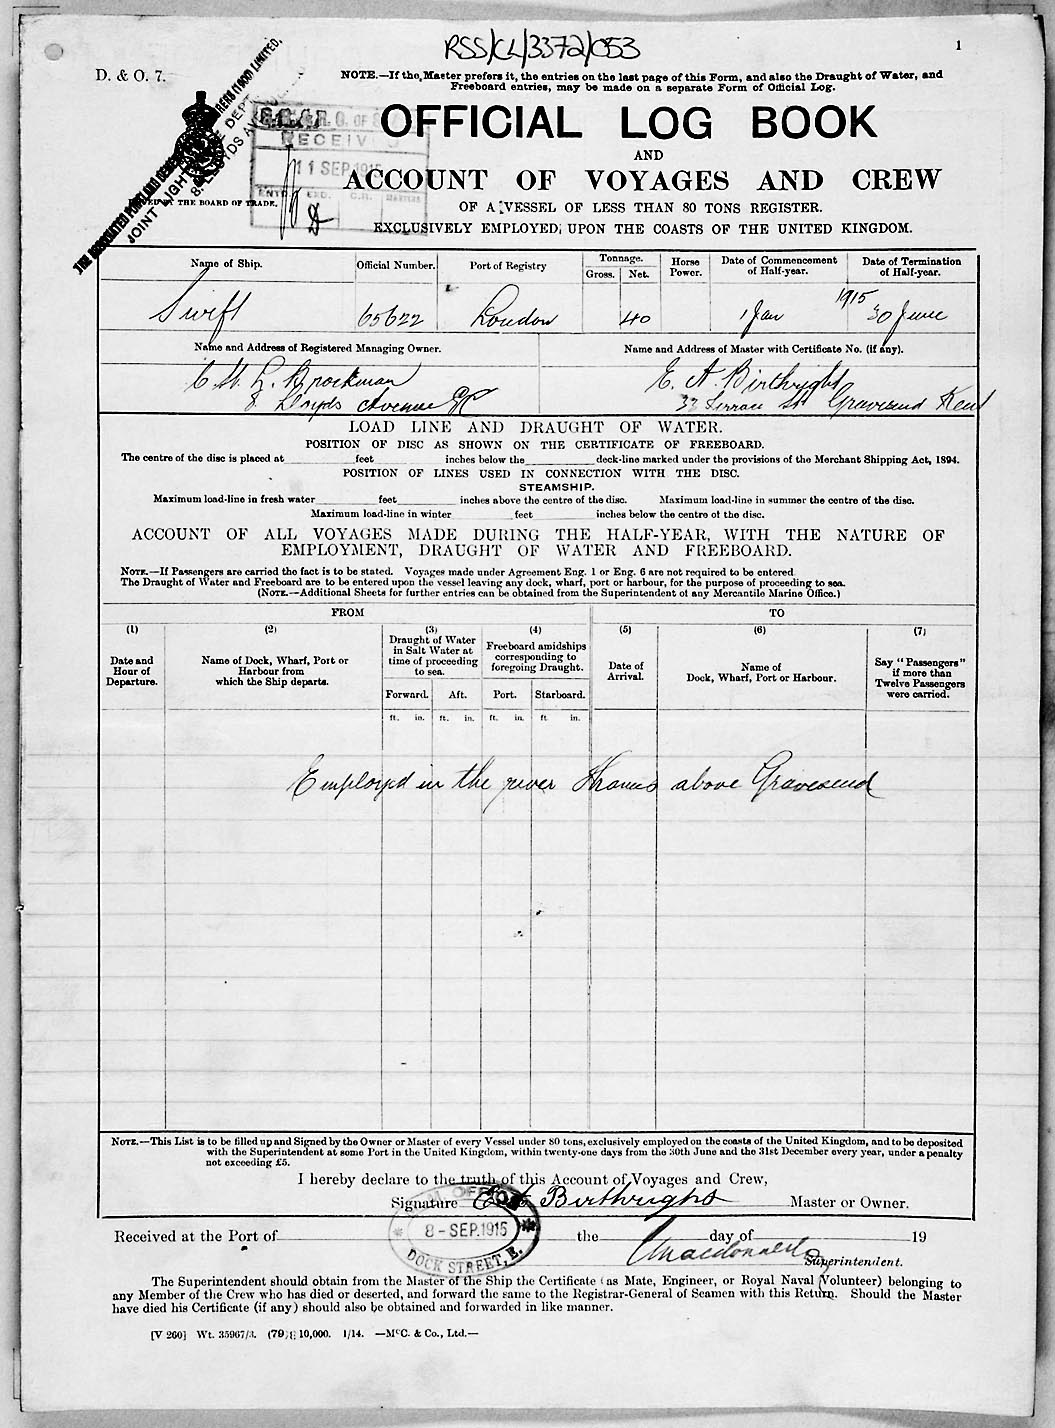 RSS/CL/3372/053
1
D. & O. 7.
NOTE.—If the Master prefers it, the entries on the last page of this Form, and also the Draught of Water, and
Freeboard entries, may be made on a separate Form of Official Log.
OFFICIAL LOG BOOK
AND
ACCOUNT OF VOYAGES AND CREW
OF A VESSEL OF LESS THAN 80 TONS REGISTER.
EXCLUSIVELY EMPLOYED UPON THE COASTS OF THE UNITED KINGDOM.
RECEIVED
11 SEP 1915
BY THE BOARD OF TRADE.
Name of Ship. Official Number. Port of Registry Tonnage. Gross. Net. Horse Power. Date of Commencement of Half-year. Date of Termination of Half-year.
Swift 65622 London 40 1 Jan 1915 30 June
Name and Address of Registered Managing Owner. Name and Address of Master with Certificate No. (if any).
Brockman E. A. Birthright
8 Lloyds Avenue EC 32 Terrace St Gravesend Kent
LOAD LINE AND DRAUGHT OF WATER.
POSITION OF DISC AS SHOWN ON THE CERTIFICATE OF FREEBOARD.
The centre of the disc is placed at feet inches below the deck-line marked under the provisions of the Merchant Shipping Act, 1894.
POSITION OF LINES USED IN CONNECTION WITH THE DISC.
STEAMSHIP.
Maximum load-line in fresh water feet inches above the centre of the disc. Maximum load-line in summer the centre of the disc.
Maximum load-line in winter feet inches below the centre of the disc.
ACCOUNT OF ALL VOYAGES MADE DURING THE HALF-YEAR, WITH THE NATURE OF
EMPLOYMENT, DRAUGHT OF WATER AND FREEBOARD.
NOTE.—If Passengers are carried the fact is to be stated. Voyages made under Agreement Eng. 1 or Eng. 6 are not required to be entered
The Draught of Water and Freeboard are to be entered upon the vessel leaving any dock, wharf, port or harbour, for the purpose of proceeding to sea.
(NOTE.—Additional Sheets for further entries can be obtained from the Superintendent of any Mercantile Marine Office.)
FROM TO
(1) (2) (3) (4) (5) (6) (7)
Date and Hour of Departure.
Name of Dock, Wharf, Port or Harbour from which the Ship departs.
Draught of Water in Salt Water at time of proceeding to sea.
Freeboard amidships corresponding to foregoing Draught.
Date of Arrival.
Name of Dock, Wharf, Port or Harbour.
Say "Passengers" if more than Twelve Passengers were carried.
Forward. Aft. Port. Starboard.
ft. in. ft. in. ft. in. ft. in.
Employed in the river Thames above Gravesend
NOTE.—This List is to be filled up and Signed by the Owner or Master of every Vessel under 80 tons, exclusively employed on the coasts of the United Kingdom, and to be deposited
with the Superintendent at some Port in the United Kingdom, within twenty-one days from the 30th June and the 31st December every year, under a penalty
not exceeding £5.
I hereby declare to the truth of this Account of Voyages and Crew,
Signature E A Birthright Master or Owner.
8 - SEP. 1915
DOCK STREET, E.
Received at the Port of the day of 19
Macdonald
Superintendent.
The Superintendent should obtain from the Master of the Ship the Certificate (as Mate, Engineer, or Royal Naval Volunteer) belonging to
any Member of the Crew who has died or deserted, and forward the same to the Registrar-General of Seamen with this Return. Should the Master
have died his Certificate (if any) should also be obtained and forwarded in like manner.
[V 260] Wt. 35967/3. (79) 10,000. 1/14. —McC. & Co., Ltd.—